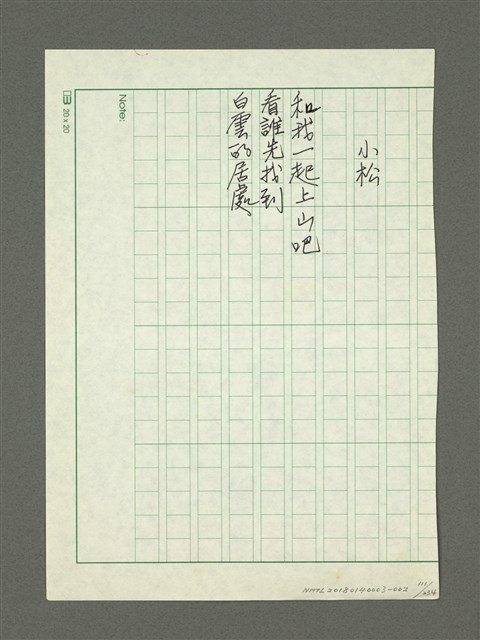 小松
和我一起上山吧
看誰先找到
白雲的居處
Note:
20 x 20
NMTL20180140003-002